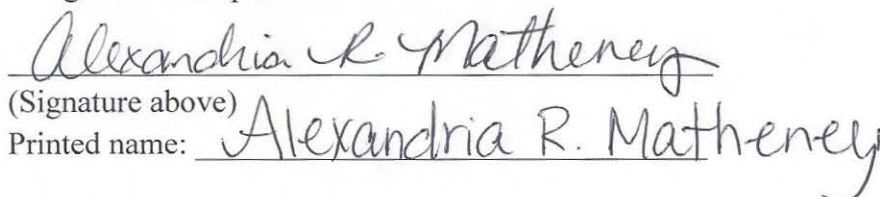 Alexandria R. Matheney
(Signature above)
Printed name: Alexandria R. Matheney